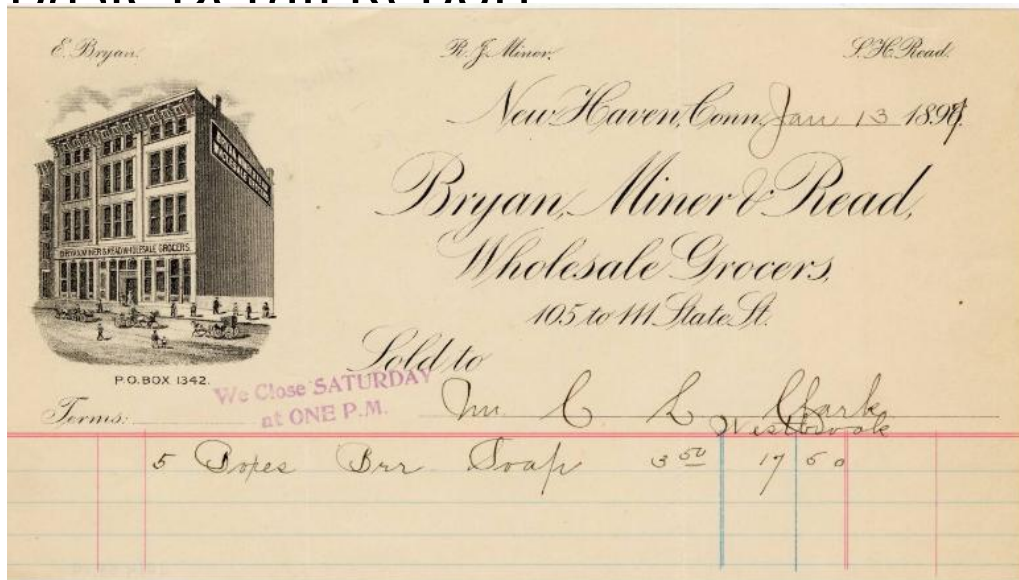 E. Bryan. R. J. Miner. S. H. Read.
New Haven, Conn. Jan 13 189
Bryan, Miner & Read,
Wholesale Grocers,
105 to 111 State St.
BRYAN, MINER & READ WHOLESALE GROCERS.
P.O. BOX 1342.
Sold to
We Close SATURDAY
at ONE P.M.
Terms: C L Clark
Westbrook
5 Boxes Soap 3 50 17 50